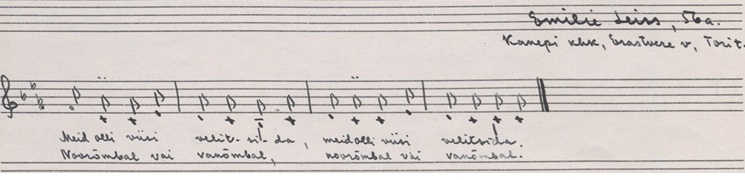 Emilie Leiss, 56a.
Kanepi khk, Erastvere v, Torit.
Meid olli viisi velit-si-da, meid olli viisi velitsida.
Noorõmbal vai vanõmbal, noorõmbal vai vanõmbal.